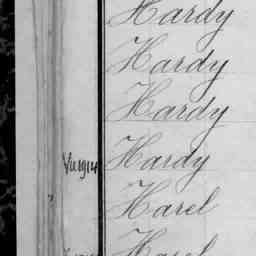 Hardy
Hardy
Hardy
Hardy
Harel
Harel